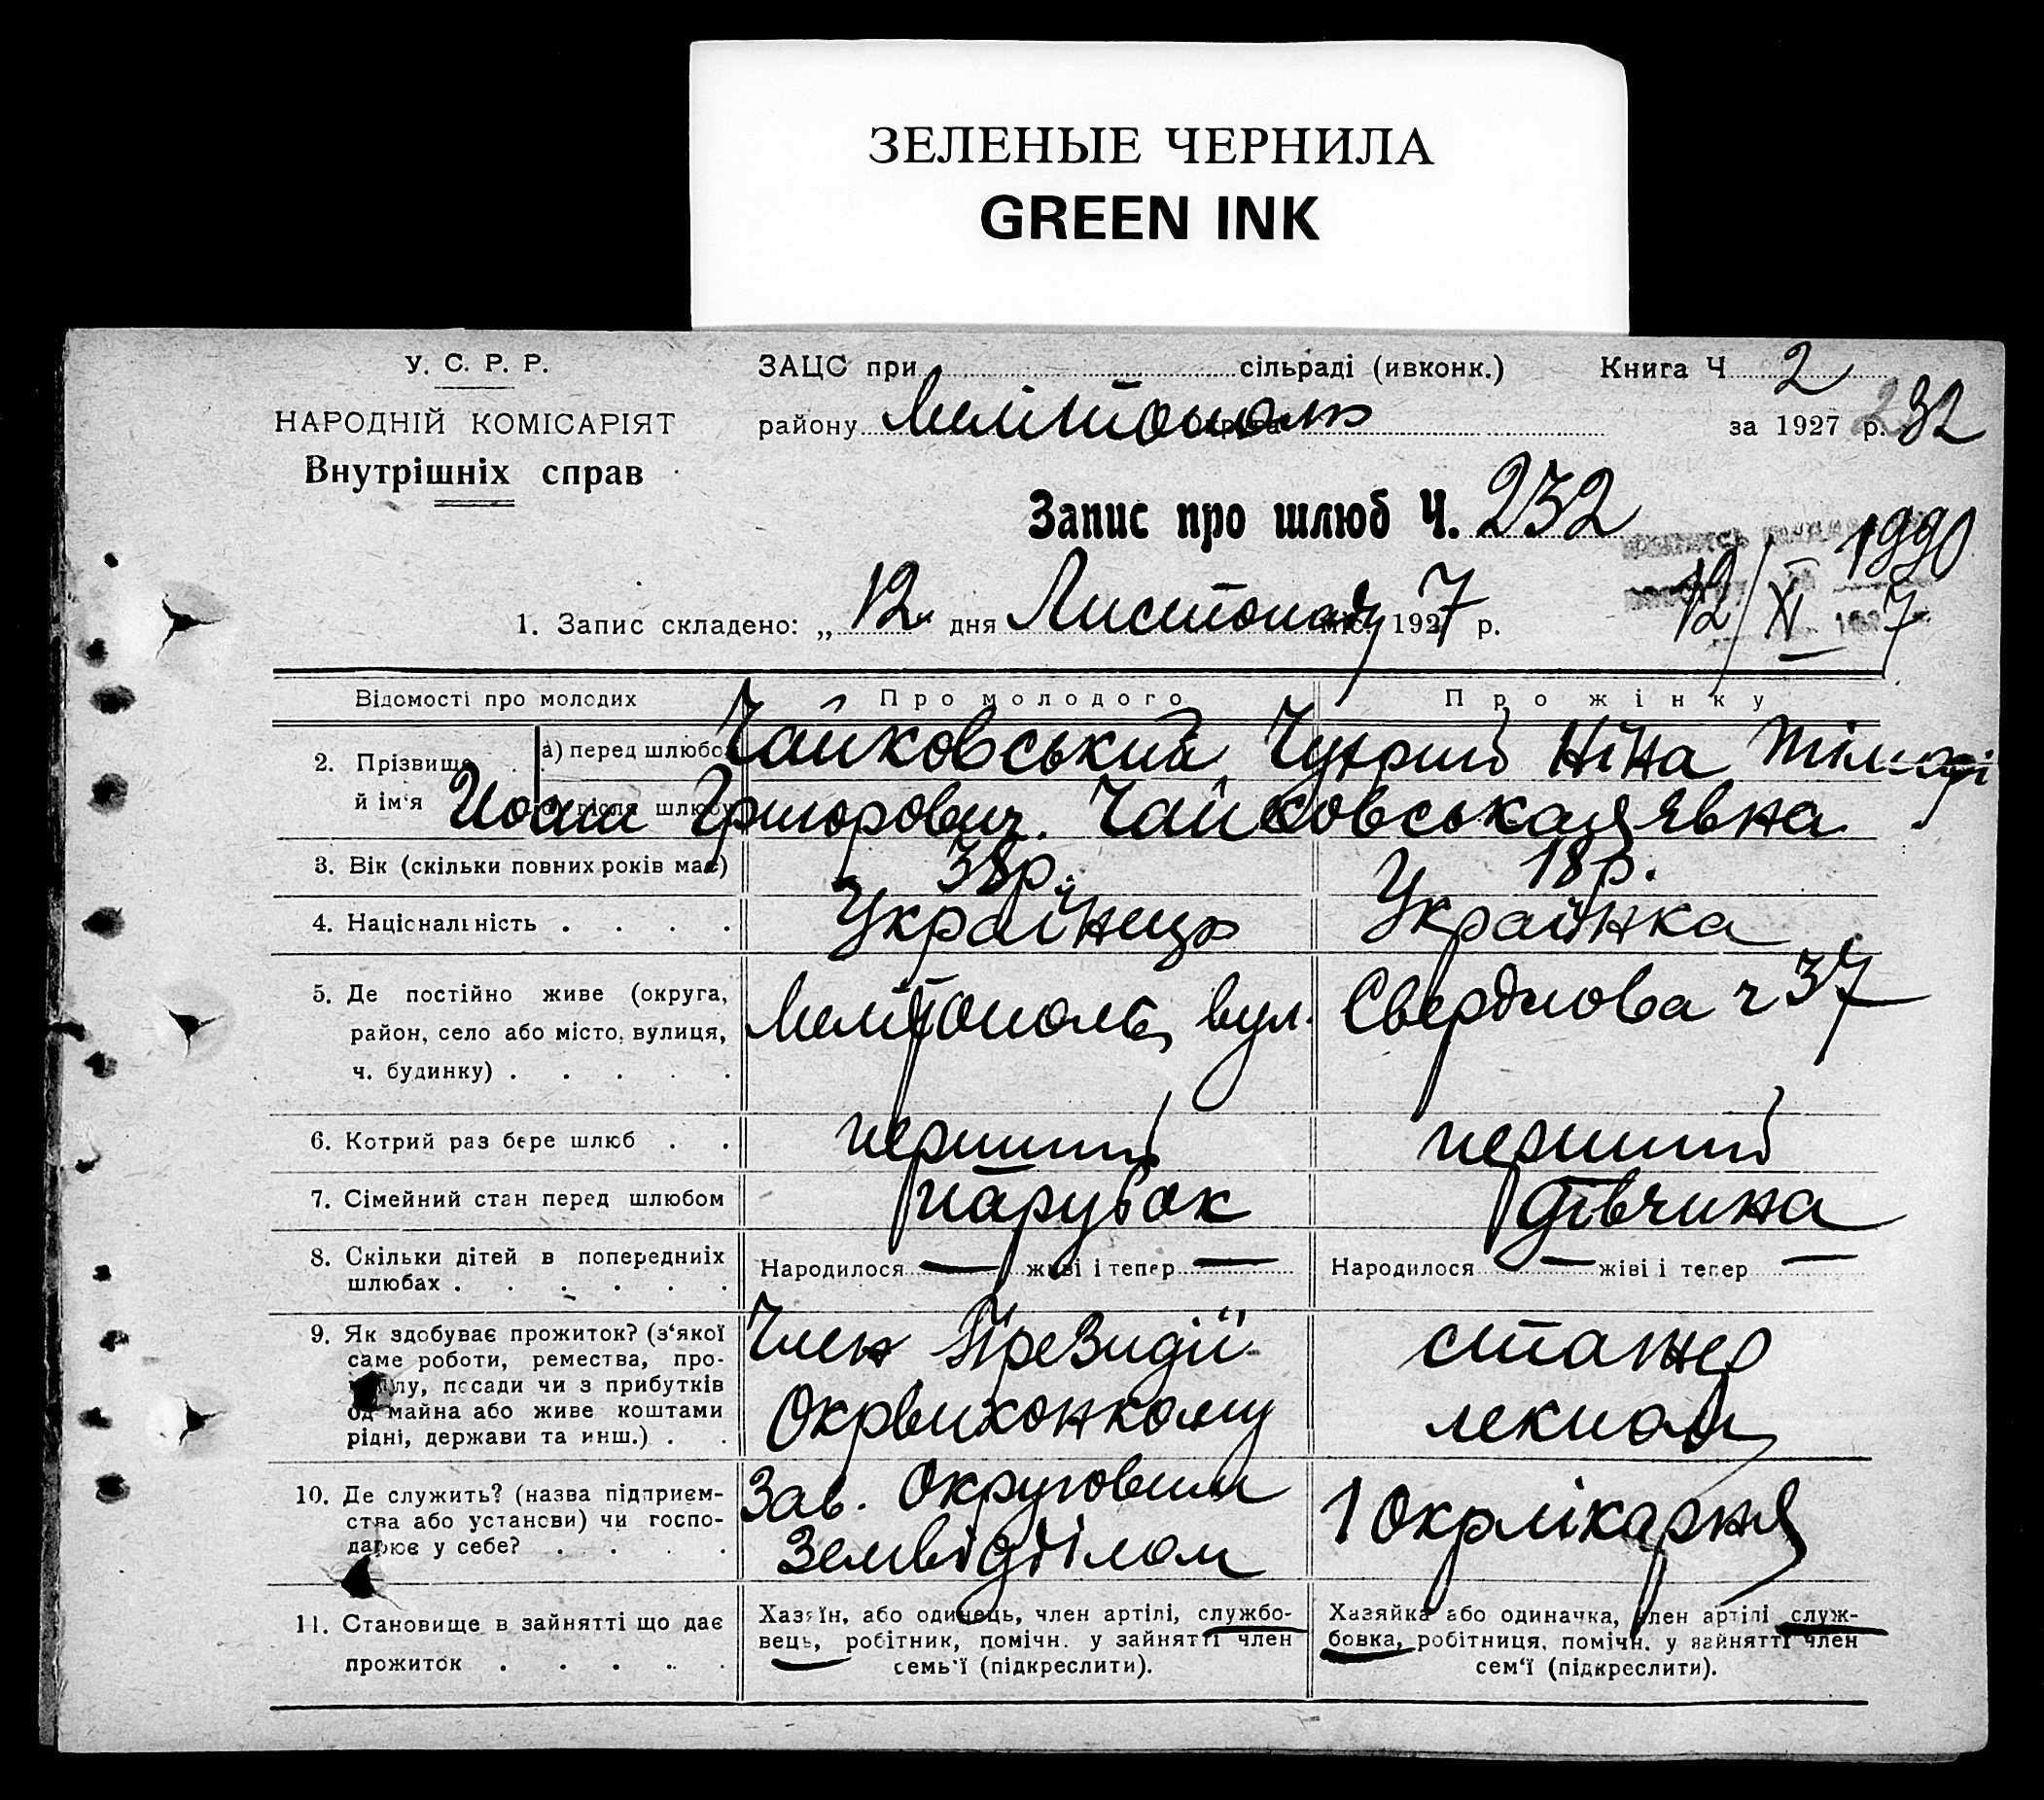 ЗЕЛЕНЫЕ ЧЕРНИЛА
GREEN INK
У. С. Р. Р.
НАРОДНІЙ КОМІСАРІЯТ
Внутрішніх справ
ЗАЦС при сільраді (ивконк.)
району Мелітополь
Книга Ч 2
за 1927 р. 232
Запис про шлюб Ч. 232
1990
1. Запис складено: „ 12 " дня Листопаду 1927 р.
12/XI 7
Відомості про молодих Про молодого Про жінку
2. Прізвище й ім'я
а) перед шлюбо
після шлюбу
Чайковський
Григорович.
Ніна
Чайковська
3. Вік (скільки повних років має) 38р. 18р.
4. Національність . . . . Українець Українка
5. Де постійно живе (округа,
район, село або місто, вулиця,
ч. будинку) . . . . .
Мелітополь, вул. Свердлова ч 37
6. Котрий раз бере шлюб . . перший перший
7. Сімейний стан перед шлюбом парубок дівчина
8. Скільки дітей в попередниіх
шлюбах . . . . . .
Народилося — живі і тепер —
Народилося — жіві і тепер —
9. Як здобуває прожиток? (з'якої
саме роботи, ремества, про-
лу, посади чи з прибутків
од майна або живе коштами
рідні, держави та инш.) . .
Член Президії
Окрвиконкому
стажер
лекпом
10. Де служить? (назва підприєм-
ства або установи) чи госпо-
дарює у себе? . . . .
Зав. Округовим
Земвідділом
1 Окрлікарня
11. Становище в зайнятті що дає
прожиток . . . . . .
Хазяїн, або одинець, член артілі, службо-
вець, робітник, помічн. у зайнятті член
семь'ї (підкреслити).
Хазяйка або одиначка, член артілі служ-
бовка, робітниця, помічн. у зайнятті член
сем'ї (підкреслити).